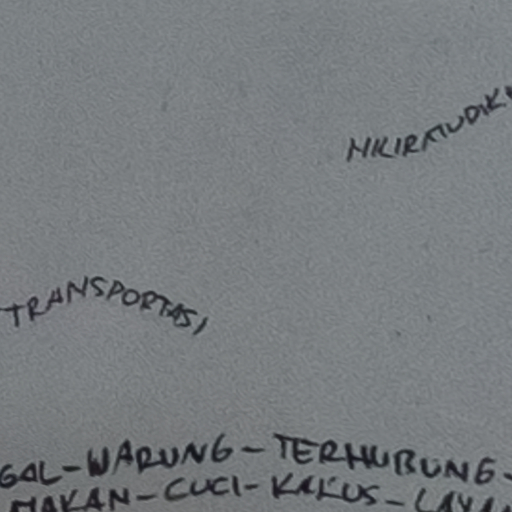 TRANSPORTASI
GAL-WARUNG-TERHUBUNG-
MAKAN-CUCI-KAKUS-LAYA